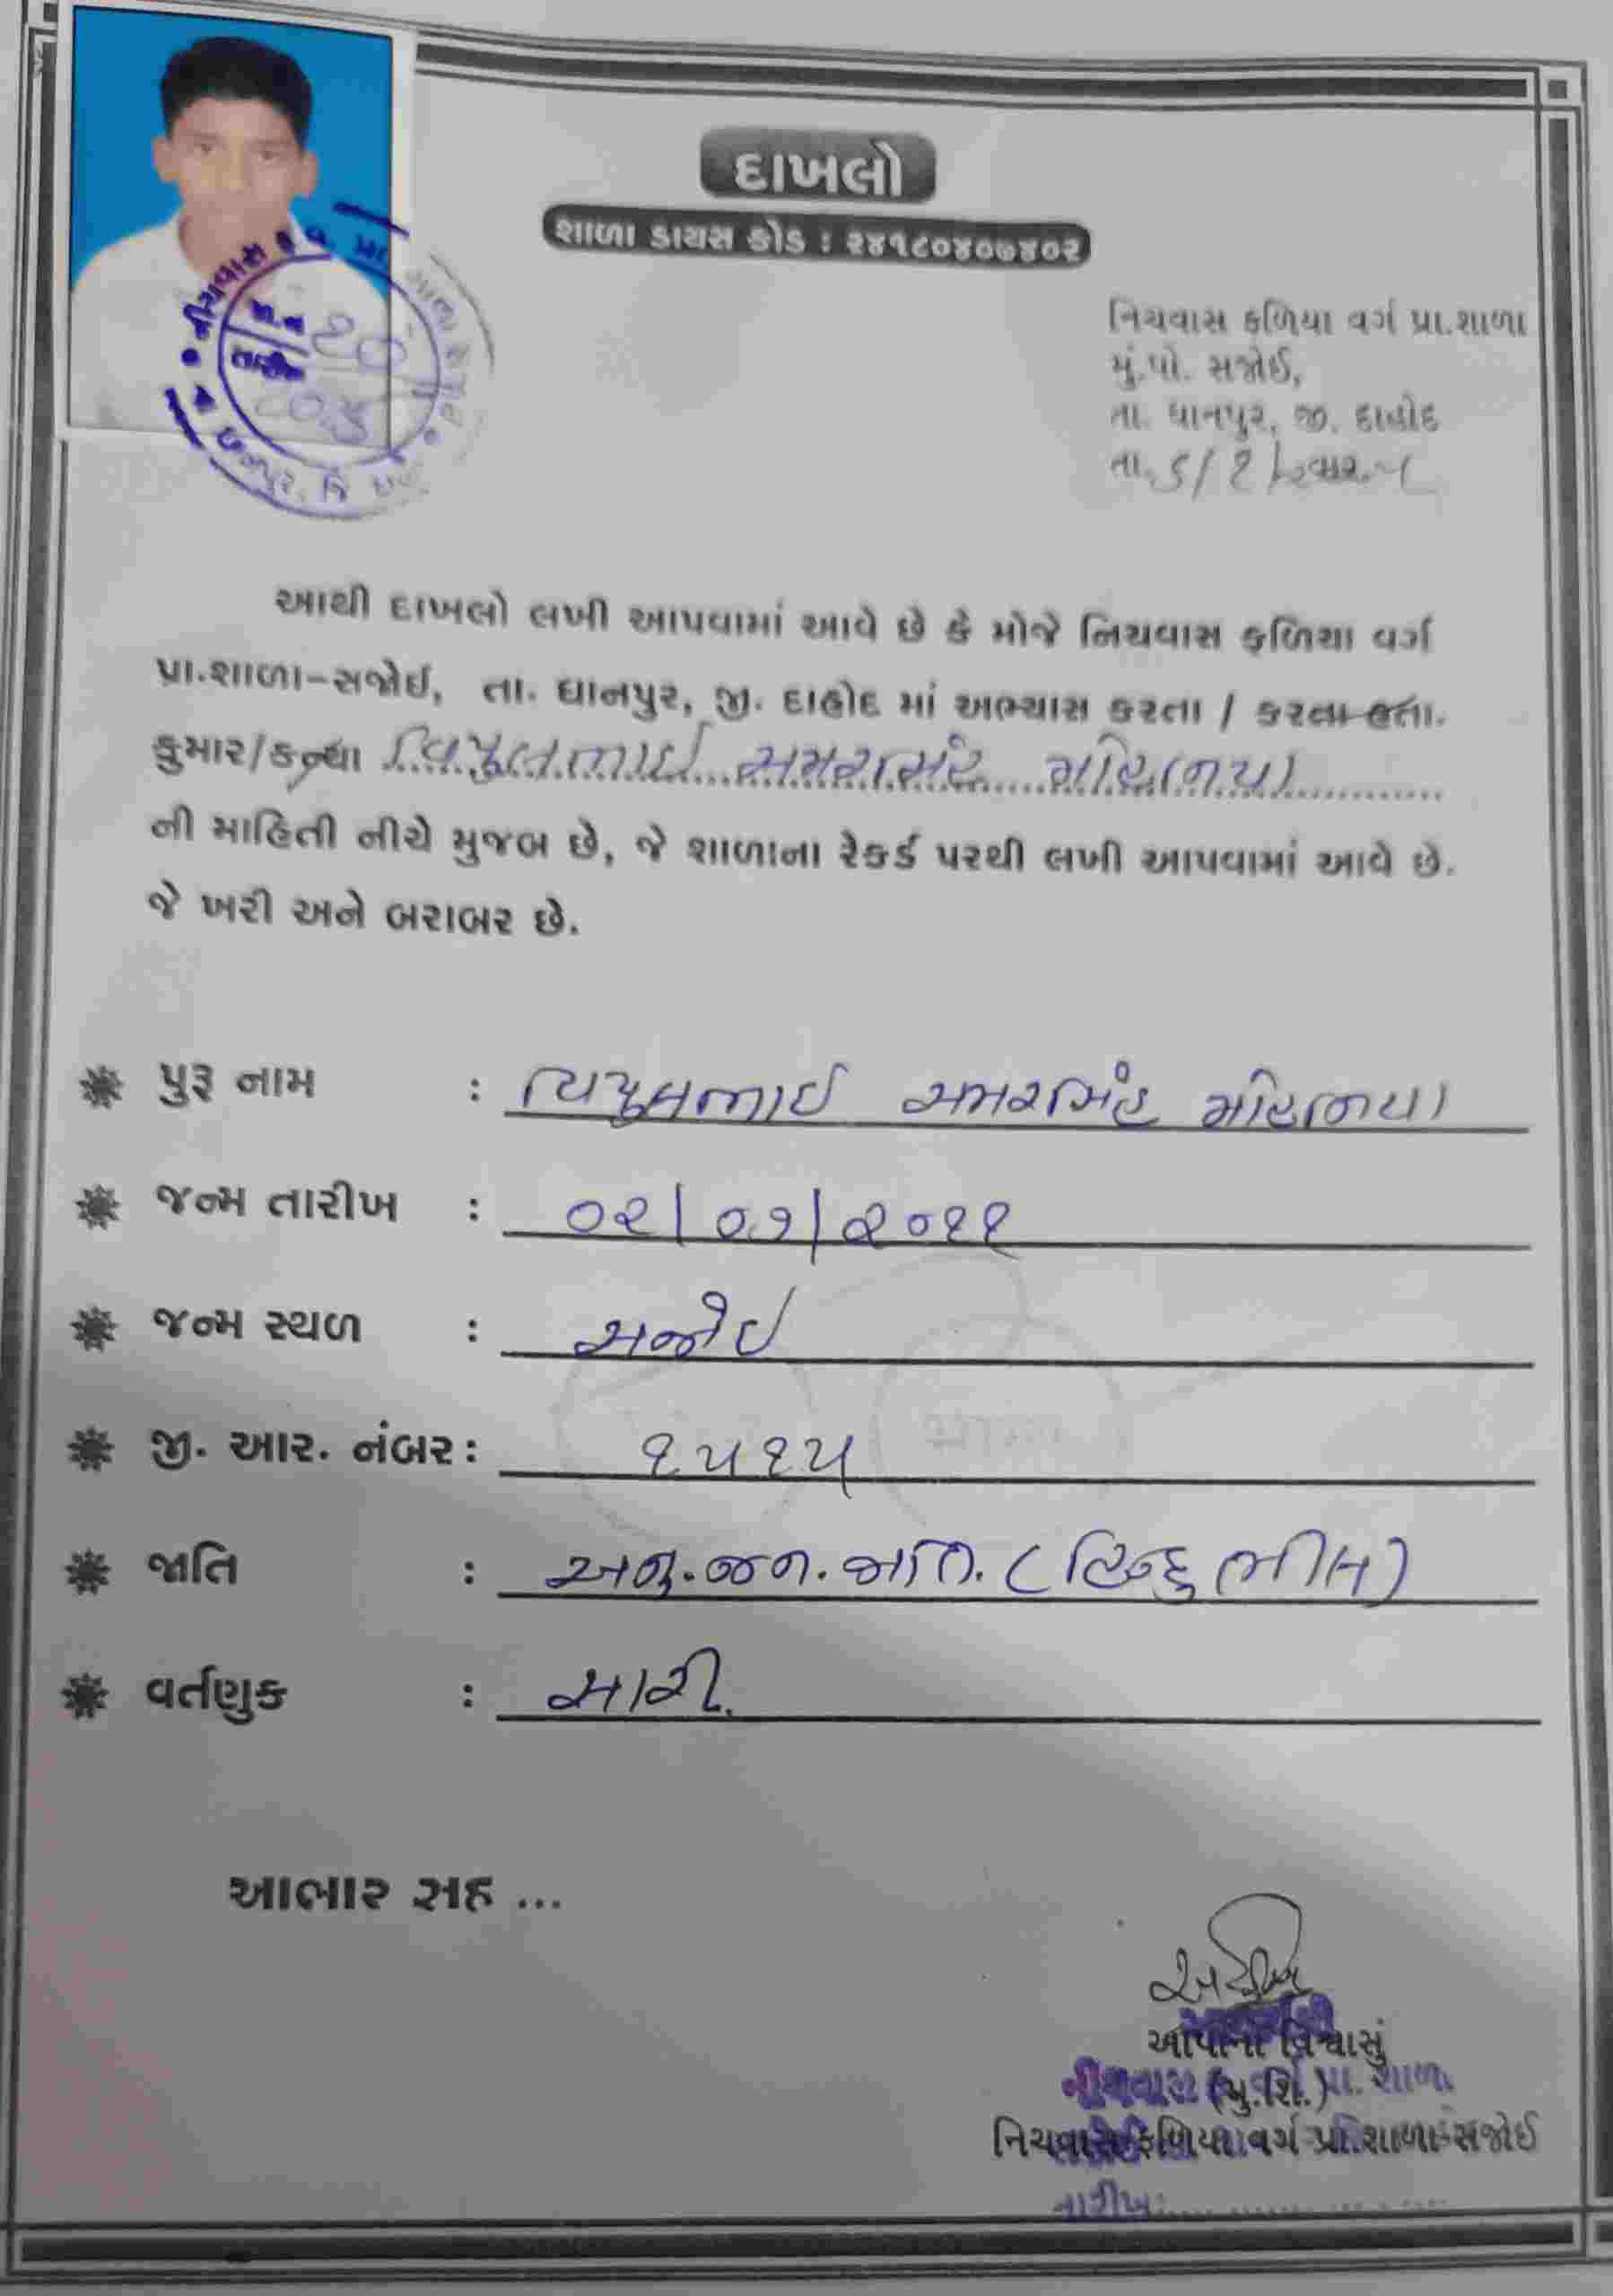 દાખલો
શાળા ડાયસ કોડ : ૨૪૧૮૦૪૦૭૪૦૨
નિચવાસ ફળિયા વર્ગ પ્રા.શાળા
મું.પો. સજોઈ,
તા. ધાનપુર, જી. દાહોદ
તા.
આથી દાખલો લખી આપવામાં આવે છે કે મોજે નિચવાસ ફળિયા વર્ગ
પ્રા.શાળા-સજોઈ, તા. ધાનપુર, જી. દાહોદ માં અભ્યાસ કરતા / કરતા હતા.
કુમાર/કન્યા વિપુલભાઈ સમરસિંહ મોહનિયા
ની માહિતી નીચે મુજબ છે, જે શાળાના રેકર્ડ પરથી લખી આપવામાં આવે છે.
જે ખરી અને બરાબર છે.
પુરૂ નામ : વિપુલભાઈ સમરસિંહ મોહનિયા
જન્મ તારીખ : ૦૨/૦૭/૨૦૧૧
જન્મ સ્થળ : સજોઈ
જી. આર. નંબર : ૧૫૧૫
જાતિ : અનુ.જન.જાતિ. (હિન્દુ ભીલ)
વર્તણુક : સારી.
આભાર સહ ...
આપનો વિશ્વાસું
(મુ.શિ.)
નિચવાસ ફળિયા વર્ગ પ્રા.શાળા-સજોઈ
તારીખ: